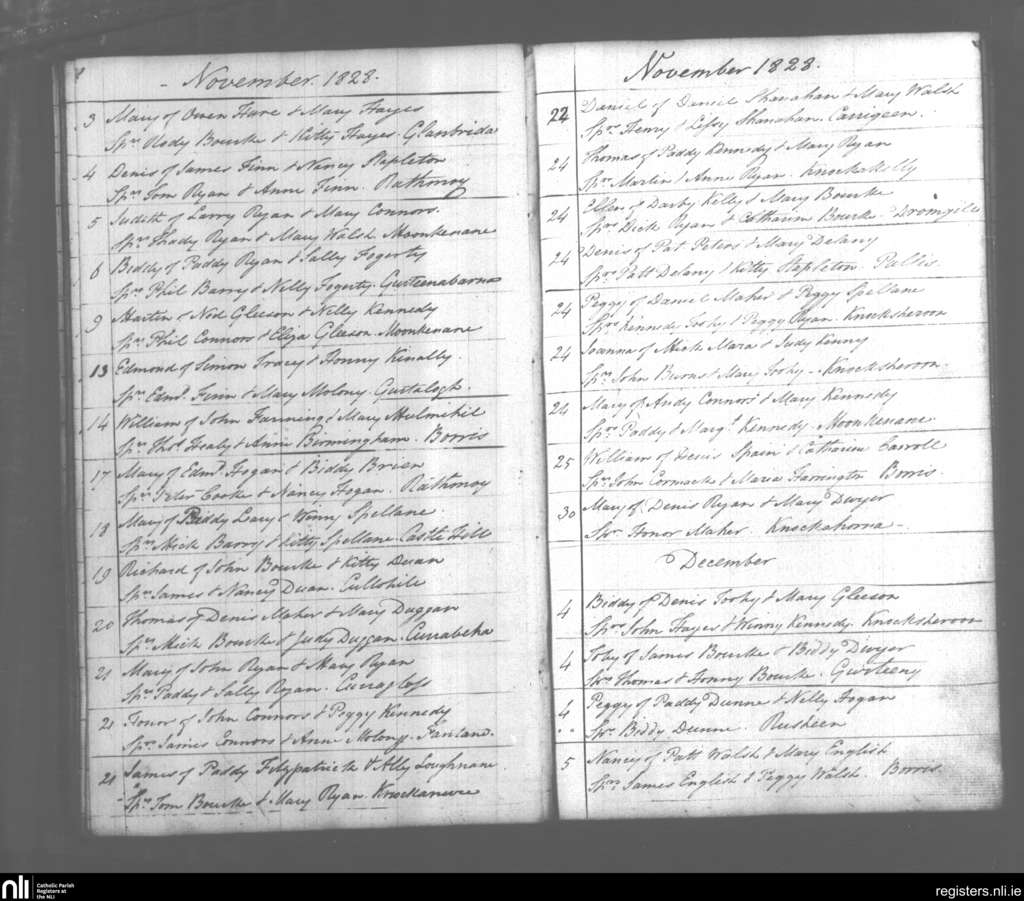 - November. 1828.
3 Mary of Owen Hare & Mary Hayes
Sprs Rody Bourke & Kitty Hayes. Glanbrida
4 Denis of James Finn & Nancy Stapleton
Sprs Tom Ryan & Anne Finn. Rathmoy
5 Judith of Larry Ryan & Mary Connors.
Sprs Thady Ryan & Mary Walsh Moonkenane
8 Biddy of Paddy Ryan & Sally Fogerty
Sprs Phil Barry & Nelly Fogerty. Gurteenabarna
9 Martin of Ned Gleeson & Nelly Kennedy
Sprs Phil Connors & Eliza Gleeson. Moonkenane
13 Edmond of Simon Tracy & Honny Kinally.
Sprs Edmd. Finn & Mary Molony. Gurtalogh.
14 William of John Fanning & Mary Mulmihil
Sprs Thos. Healy & Anne Birmingham. Borris
17 Mary of Edmd. Hogan & Biddy Brien
Sprs Peter Cooke & Nancy Hogan. Rathmoy
18 Mary of Biddy Leary & Winny Spellane
Sprs Mick Barry & Kitty Spellane. Castle Hill
19 Richard of John Bourke & Kitty Duan
Sprs James & Nancy Duan. Cullohile
20 Thomas of Denis Maher & Mary Duggan
Sprs Mick Bourke & Judy Duggan. Currabeha
21 Mary of John Ryan & Mary Ryan
Sprs Paddy & Sally Ryan.
21 Honor of John Connors & Peggy Kennedy
Sprs James Connors & Anne Molony. Fanland.
21 James of Paddy Fitzpatrick & Ally Loughnane.
Sprs Tom Bourke & Mary Ryan. Knockanure
November 1828.
22 Daniel of Daniel Shanahan & Mary Walsh
Sprs Henry & Shanahan. Carrigeen.
24 Thomas of Paddy Kennedy & Mary Ryan
Sprs Martin & Anne Ryan. Knockakelly
24 Ellen of Darby Kelly & Mary Bourke
Sprs Dick Ryan & Catharine Bourke. Dromgile
24 Denis of Pat Peters & Mary Delany
Sprs Patt Delany & Kitty Stapleton. Pallis.
24 Peggy of Daniel Maher & Peggy Spellane
Sprs Kennedy Toohy & Peggy Ryan. Knocksheroon
24 Joanna of Mick Mara & Judy Kenny
Sprs John Burns & Mary Toohy - Knocksheroon.
24 Mary of Andy Connors & Mary Kennedy
Sprs Paddy & Margt. Kennedy. Moonkenane
25 William of Denis Spain & Catharine Carroll
Sprs John Cormack & Maria Harrington Borris.
30 Mary of Denis Ryan & Mary Dwyer
Spr Honor Maher. Knockahorna -
December
4 Biddy of Denis Toohy & Mary Gleeson
Sprs John Hayes & Winny Kennedy. Knocksheroon
4 Toby of James Bourke & Biddy Dwyer
Sprs Thomas & Honny Bourke. Gurteeny
4 Peggy of Paddy Dunne & Nelly Hogan
Spr Biddy Dunne. Rusheen
5 Nancy of Patt Walsh & Mary English
Sprs James English & Peggy Walsh. Borris.
nli Catholic Parish
Registers at
the NLI
registers.nli.ie